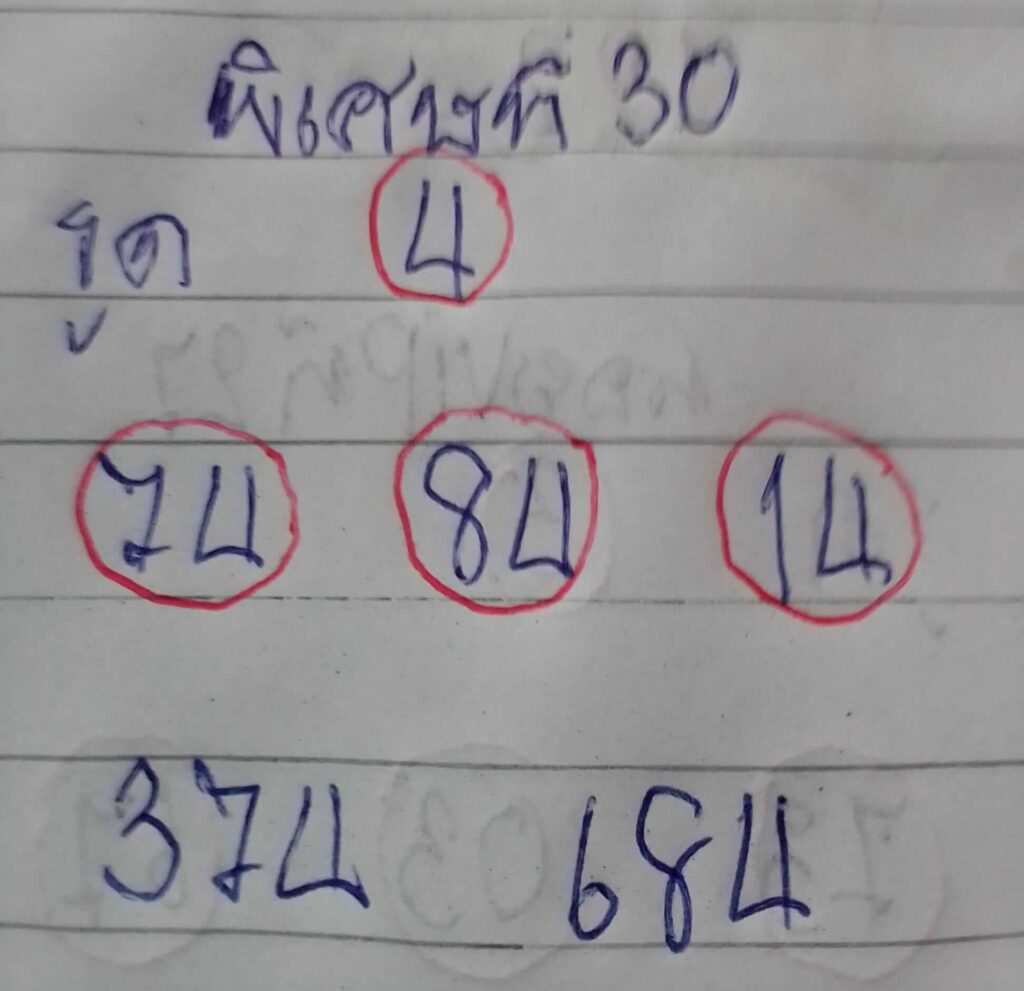 พิเศษที่ 30
รูด 4
74 84 14
374 684